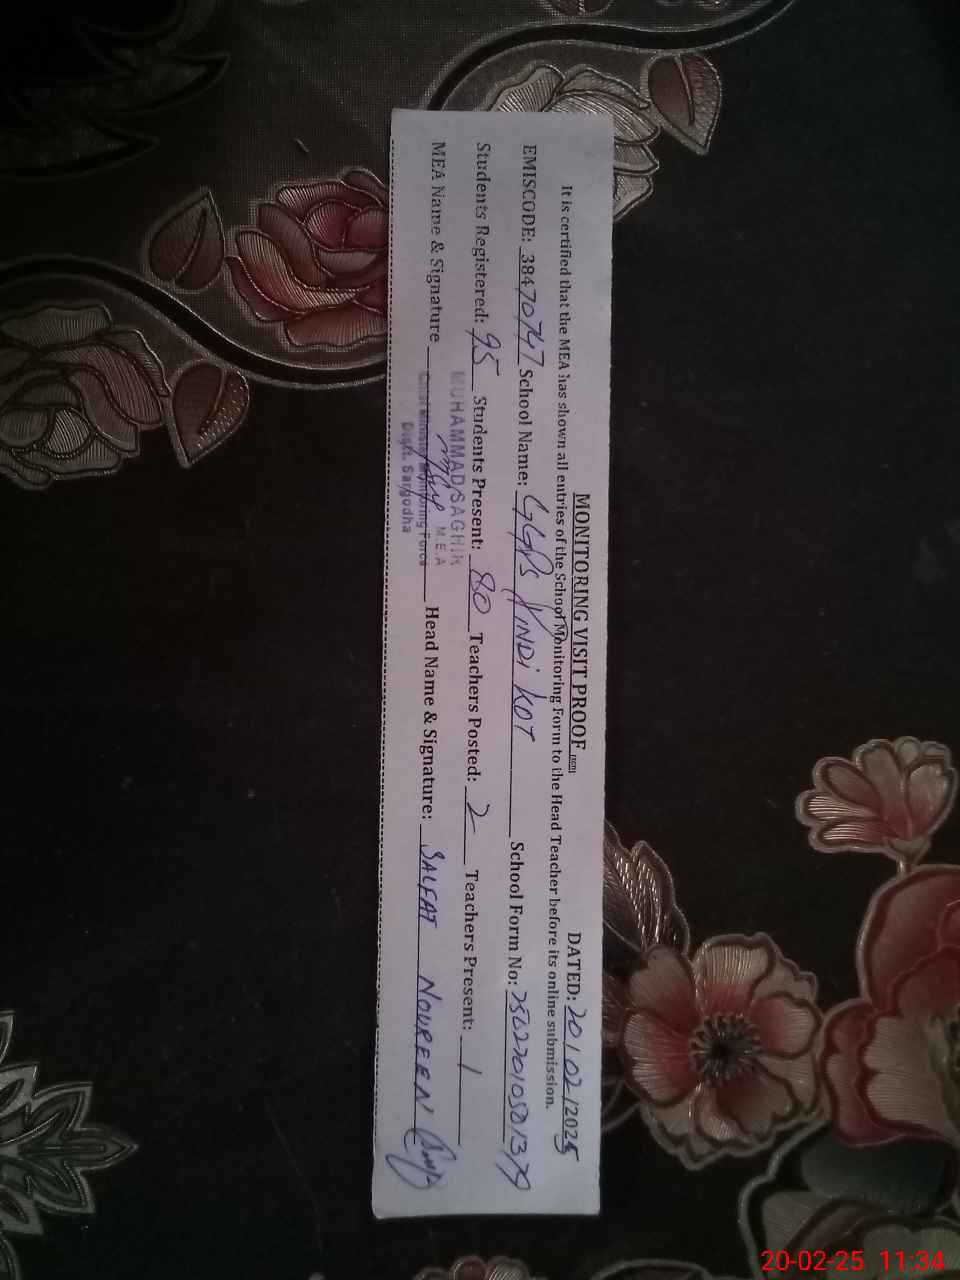 MONITORING VISIT PROOF
DATED: 20/02/2025
It is certified that the MEA has shown all entries of the School Monitoring Form to the Head Teacher before its online submission.
EMISCODE: 38470747 School Name: GGPS HINDI KOT School Form No:
Students Registered: 95 Students Present: 80 Teachers Posted: 2 Teachers Present: 1
MUHAMMAD SAGHIR
M.E.A
MEA Name & Signature Head Name & Signature: SALFAT NOUREEN
Chief Minister Monitoring Force
Distt. Sargodha
20-02-25 11:34